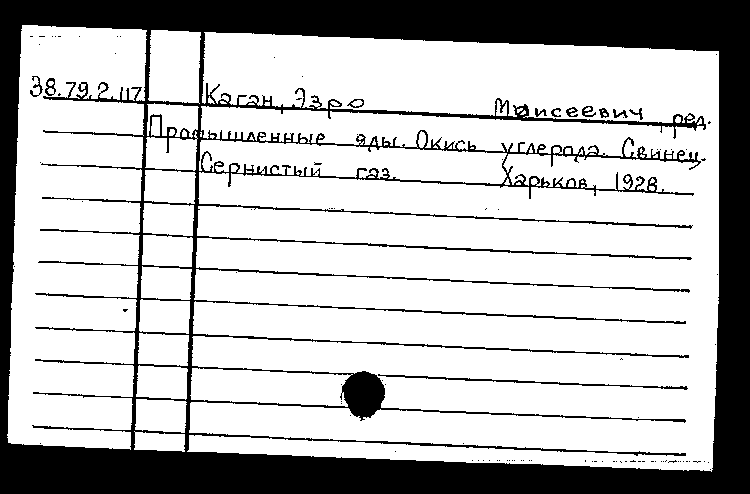 38.79.2.117 Каган, Эзро Моисеевич, ред.
Промышленные яды. Окись углерода. Свинец.
Сернистый газ. Харьков, 1928.